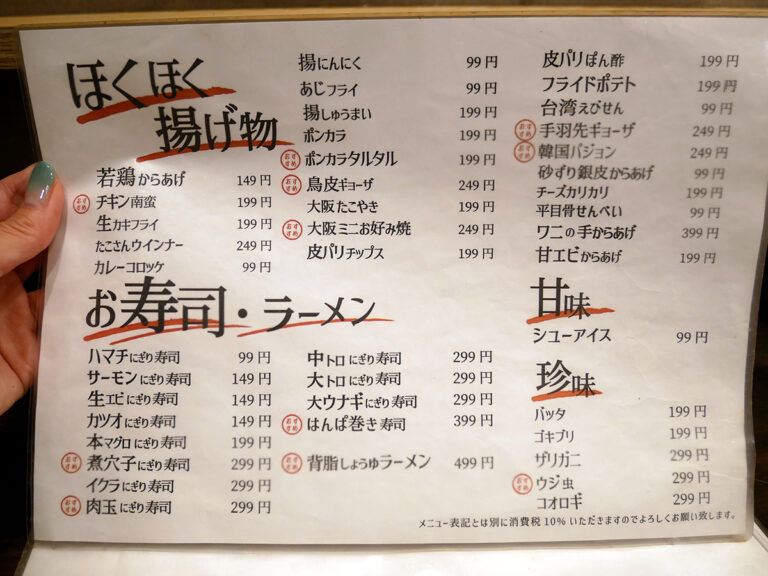 ほくほく
揚げ物
若鶏からあげ 149円
おすすめ チキン南蛮 199円
生カキフライ 199円
たこさんウインナー 249円
カレーコロッケ 99円
揚にんにく 99円
あじフライ 99円
揚しゅうまい 199円
ポンカラ 199円
おすすめ ポンカラタルタル 199円
おすすめ 鳥皮ギョーザ 249円
大阪たこやき 199円
おすすめ 大阪ミニお好み焼 249円
皮パリチップス 199円
皮パリぽん酢 199円
フライドポテト 199円
台湾えびせん 99円
おすすめ 手羽先ギョーザ 249円
おすすめ 韓国バジョン 249円
砂ずり銀皮からあげ 99円
チーズカリカリ 199円
平目骨せんべい 99円
ワニの手からあげ 399円
甘エビからあげ 199円
お寿司・ラーメン
ハマチにぎり寿司 99円
サーモンにぎり寿司 149円
生エビにぎり寿司 149円
カツオにぎり寿司 149円
本マグロにぎり寿司 199円
おすすめ 煮穴子にぎり寿司 299円
イクラにぎり寿司 299円
おすすめ 肉玉にぎり寿司 299円
中トロにぎり寿司 299円
大トロにぎり寿司 299円
大ウナギにぎり寿司 299円
おすすめ はんぱ巻き寿司 399円
おすすめ 背脂しょうゆラーメン 499円
甘味
シューアイス 99円
珍味
バッタ 199円
ゴキブリ 199円
ザリガニ 299円
おすすめ ウジ虫 299円
コオロギ 299円
メニュー表記とは別に消費税10%いただきますのでよろしくお願い致します。